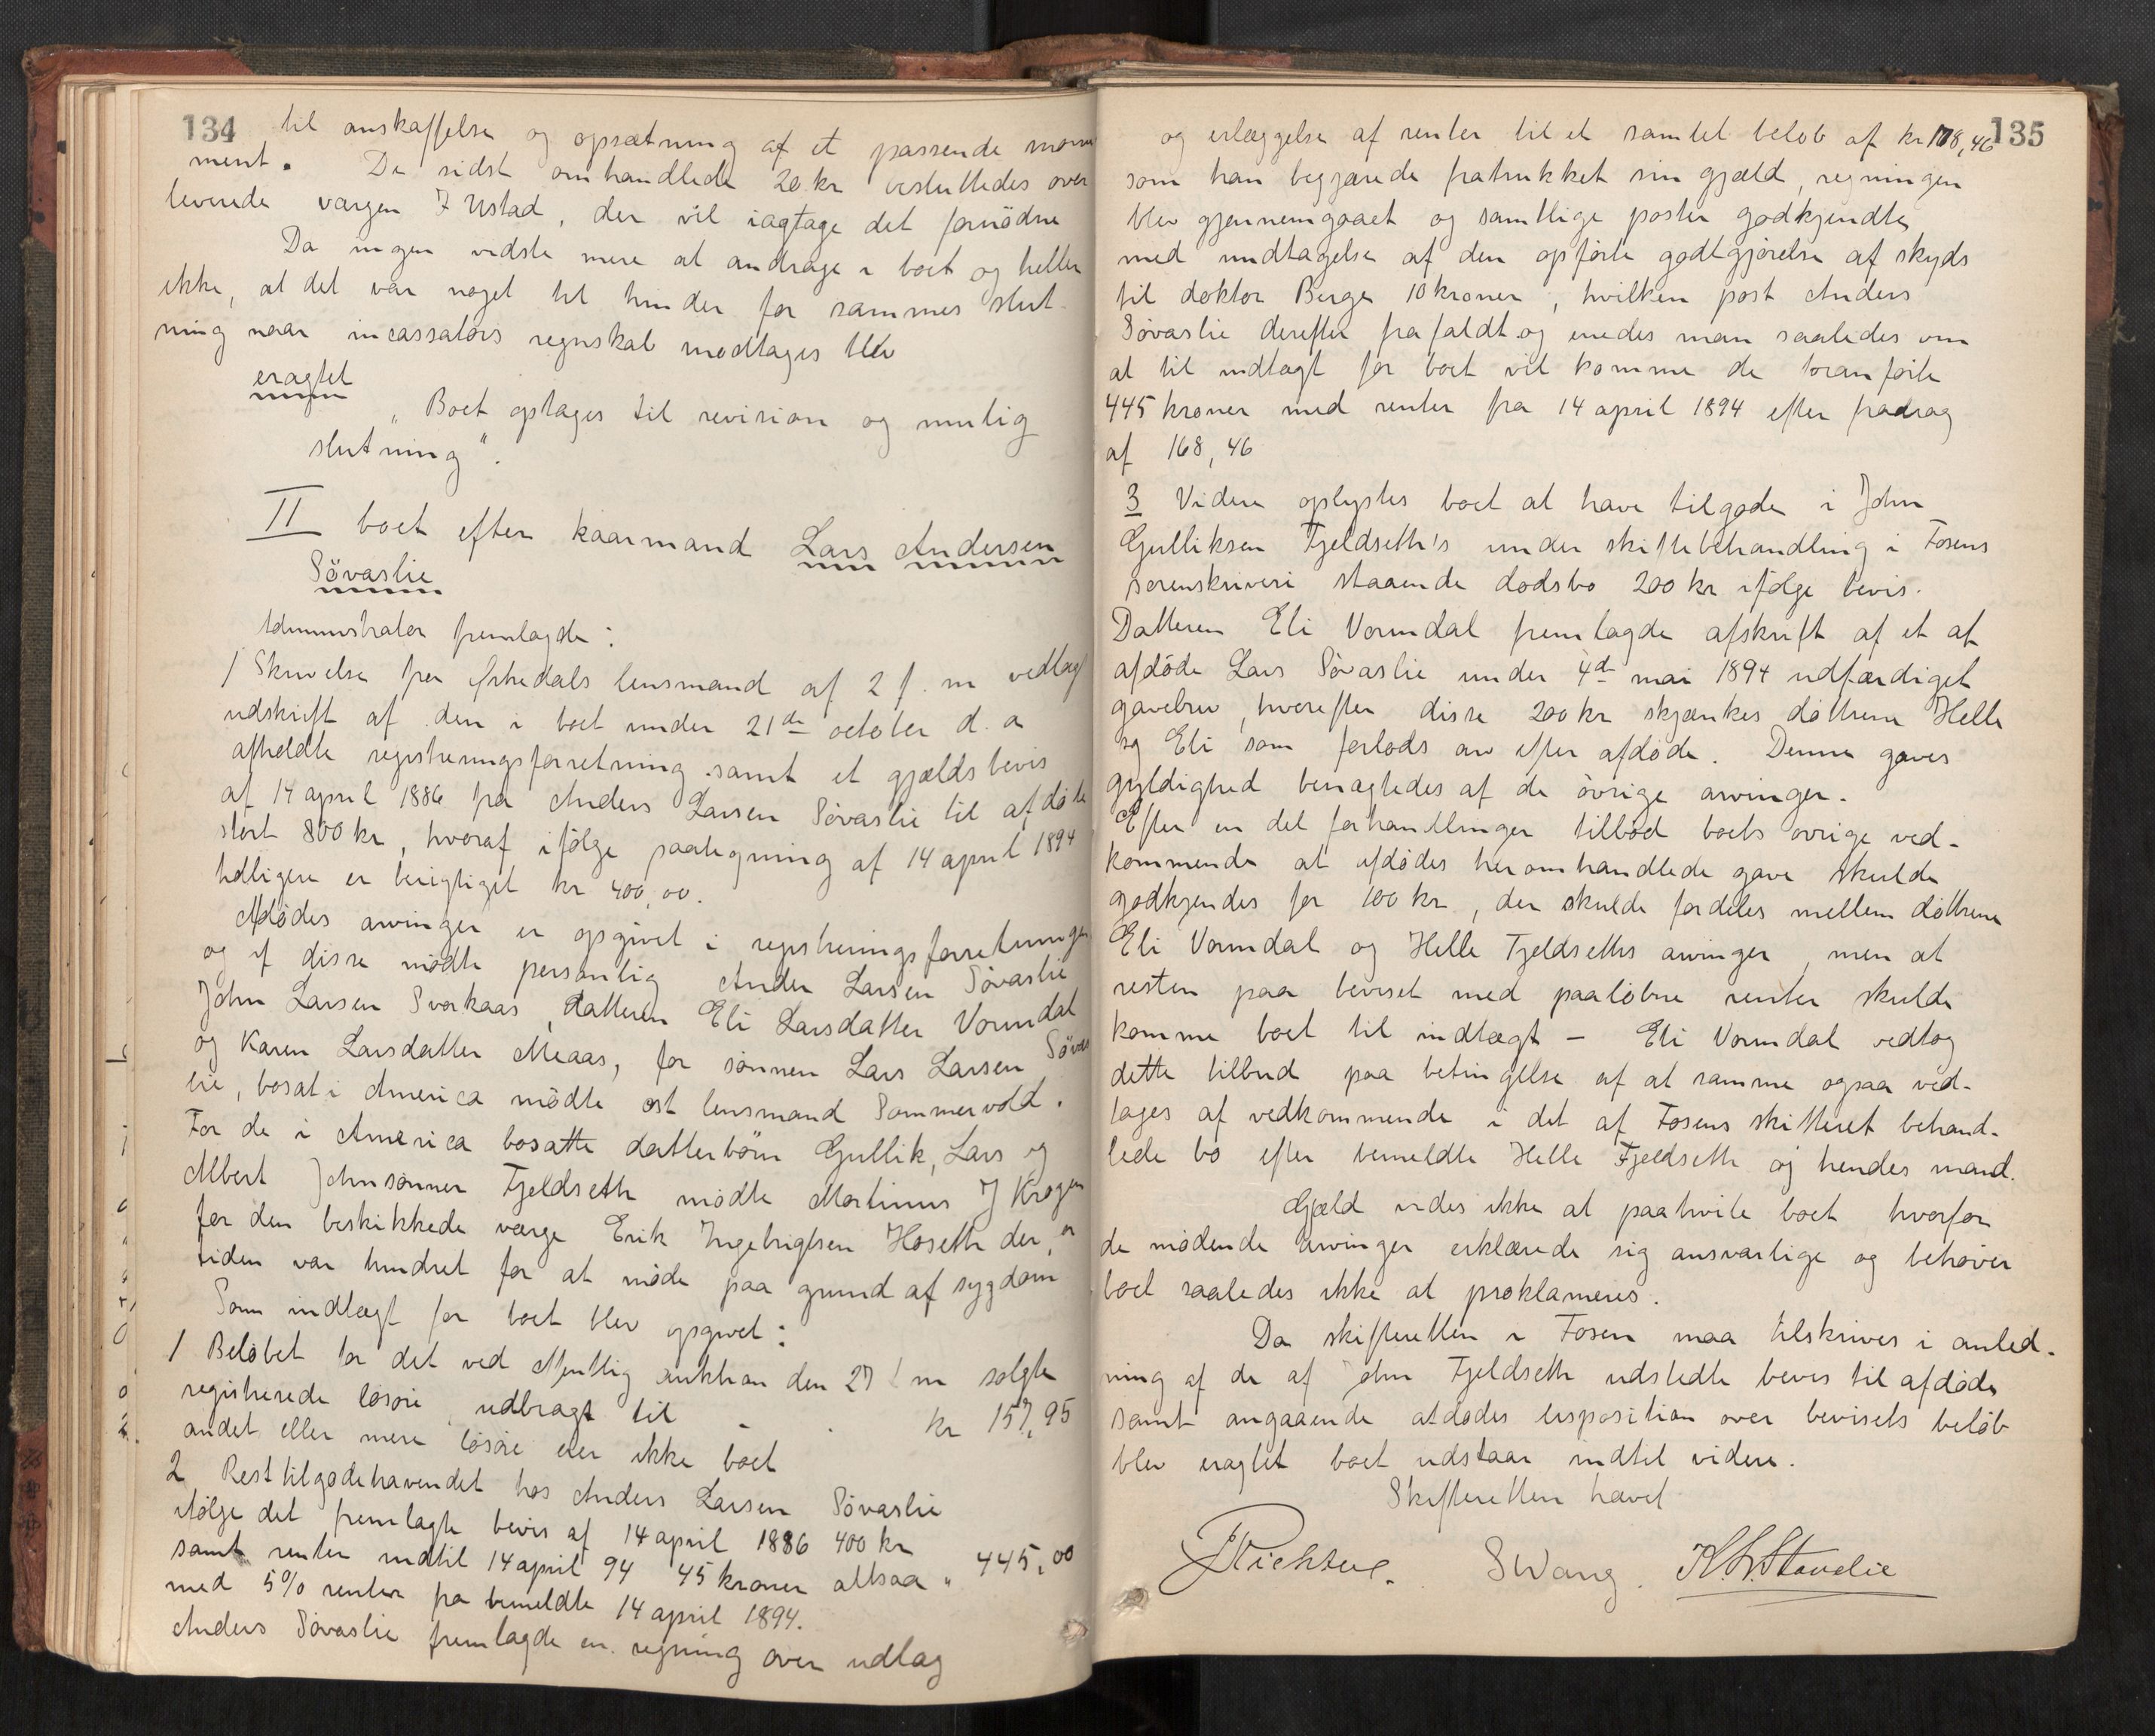 134
til anskaffelse og opsætning af et passende monu
ment. De sidst omhandlede 20 kr besluttedes over
leverede værgen J Ustad, der vil iagtage det fornødne
Da ingen vidste mere at andrage i boet og heller
ikke, at det var noget til hinder for sammes slut-
ning naar incassators regnskab modtages blev
eragtet
„Boet optages til revision og mulig
slutning".
II boet efter kaarmand Lars Andersen
Søvaslie
Administrator fremlagde:
1 Skrivelse fra Ørkedals lensmand af 2 f. m vedlagt
udskrift af den i boet under 21de october d. a
afholdte registreringsforretning samt et gjældsbevis
af 14 april 1886 fra Anders Larsen Søvaslie til afdøde
stort 800 kr, hvoraf ifølge paategning af 14 april 1894
tidligere er berigtiget kr 400,00.
Afdødes arvinger er opgivet i registreringsforretningen
og af disse mødte personlig Anders Larsen Søvaslie
John Larsen Svorkaas, datteren Eli Larsdatter Vormdal
og Karen Larsdatter Meaas, for sønnen Lars Larsen Søvas
lie, bosat i America mødte ast lensmand Sommervold.
For de i America bosatte datterbørn Gullik, Lars og
Albert Johnsønner Fjeldseth mødte Martinus J Krogen
for den beskikkede værge Erik Ingebrigtsen Hoseth der, er
siden var hindret for at møde paa grund af sygdom
Som indtægt for boet blev opgivet:
1 Beløbet for det ved offentlig auktion den 27 f m solgte
registrerede løsøre, udbragt til - . kr 157,95
andet eller mere løsøre eier ikke boet
2 Resttilgodehavendet hos Anders Larsen Søvaslie
ifølge det fremlagte bevis af 14 april 1886 400 kr
samt renter indtil 14 april 94 45 kroner altsaa „ 445,00
med 5% renter fra bemeldte 14 april 1894.
Anders Søvaslie fremlagde en regning over udlæg
135
og erlæggelse af renter til et samlet beløb af kr 178,46
som han begjærede fratrukket sin gjæld, regningen
blev gjennemgaaet og samtlige poster godkjendte
med undtagelse af den opførte godtgjørelse af skyds
til doktor Berge 10 kroner, hvilken post Anders
Søvaslie derefter frafaldt og enedes man saaledes om
at til indtægt for boet vil komme de foranførte
445 kroner med renter fra 14 april 1894 efter fradrag
af 168,46
3 Videre oplystes boet at have tilgode i John
Gulliksen Fjeldseth's under skiftebehandling i Fosens
sorenskriveri staaende dødsbo 200 kr ifølge bevis.
Datteren Eli Vormdal fremlagde afskrift af et af
afdøde Lars Søvaslie under 4de mai 1894 udfærdiget
gavebrev, hvorefter disse 200 kr skjænkes døttrene Helle
og Eli som forlods arv efter afdøde. Denne gaves
gyldighed benægtedes af de øvrige arvinger.
Efter en del forhandlinger tilbød boets øvrige ved-
kommende at afdødes heromhandlede gave skulde
godkjendes for 100 kr, der skulde fordeles mellem døttrene
Eli Vormdal og Helle Fjeldseths arvinger, men at
resten paa beviset med paaløbne renter skulde
komme boet til indtægt - Eli Vormdal vedtog
dette tilbud paa betingelse af at samme ogsaa ved-
tages af vedkommende i det af Fosens skifteret behand-
lede bo efter bemeldte Helle Fjeldseth og hendes mand.
Gjæld vides ikke at paahvile boet hvorfor
de mødende arvinger erklærede sig ansvarlige og behøver
boet saaledes ikke at proklameres.
Da skifteretten i Fosen maa tilskrives i anled-
ning af de af John Fjeldseth udstedte bevis til afdøde
samt angaaende afdødes disposition over bevisets beløb
blev eragtet boet udstaar indtil videre.
Skifteretten hævet
J Richter. S Wang. K. L. Stavlie